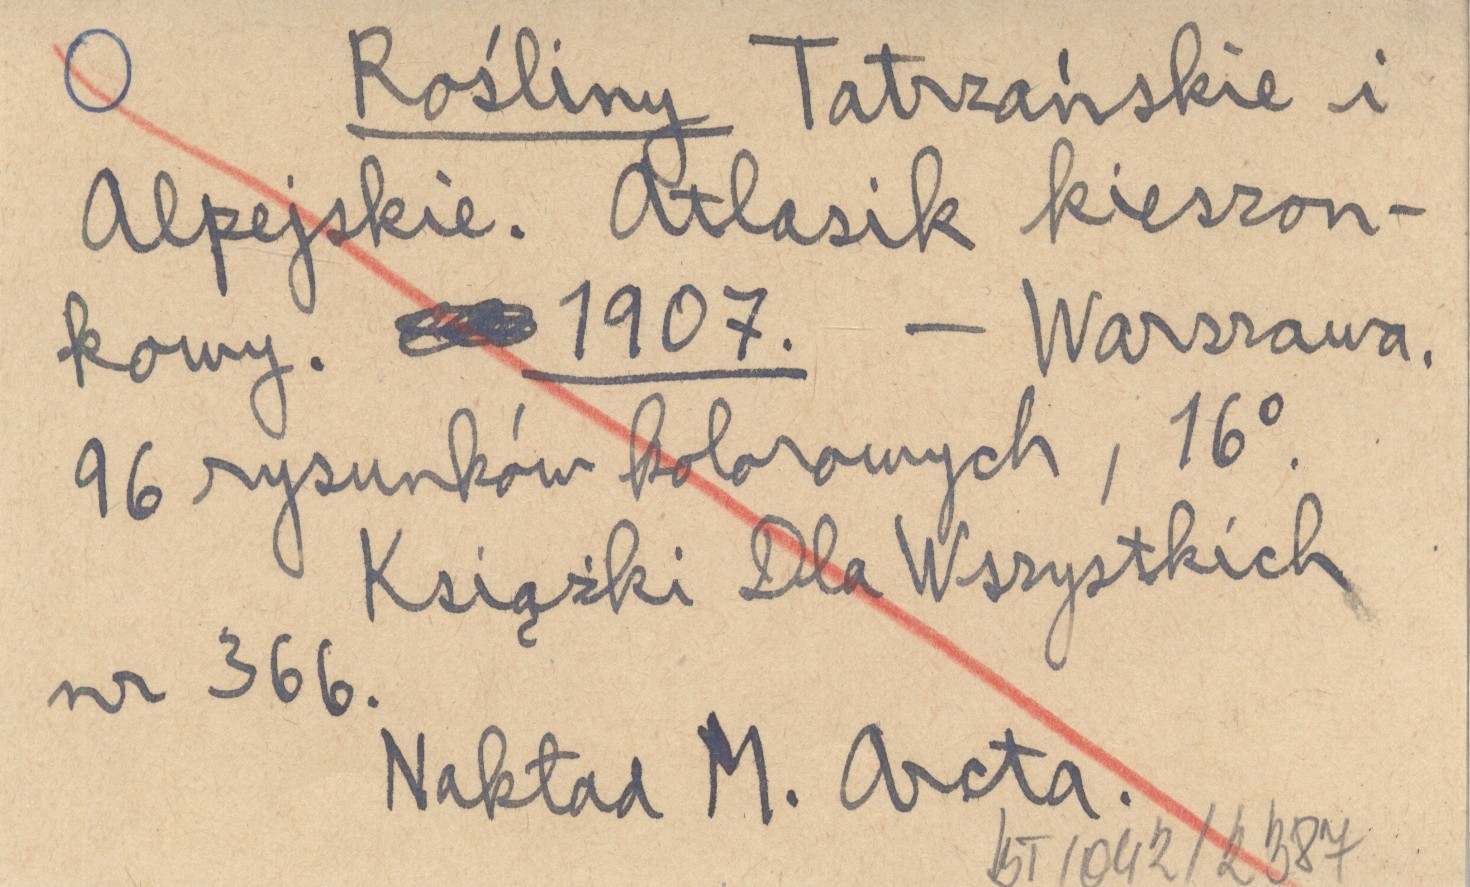 Rośliny Tatrzańskie i
Alpejskie. Atlasik kieszon-
kowy. 1907. — Warszawa.
96 rysunków kolorowych, 16°.
Książki Dla Wszystkich
nr 366.
Nakład M. Arcta.
BT/042/2387